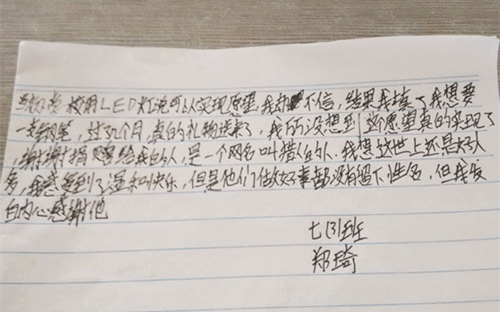 校用LED灯说可以实现愿望,我却不信,结果我填了我想要
一支钢笔,过了几个月,真的礼物送来了,我万万没想到这愿望真的实现了
,谢谢捐赠给我的人,是一个网名叫猎人的人.我想这世上还是好人
多,我感受到了温和快乐,但是他们做好事都没有留下姓名,但我发
自内心感谢他
七(3)班
郑琦